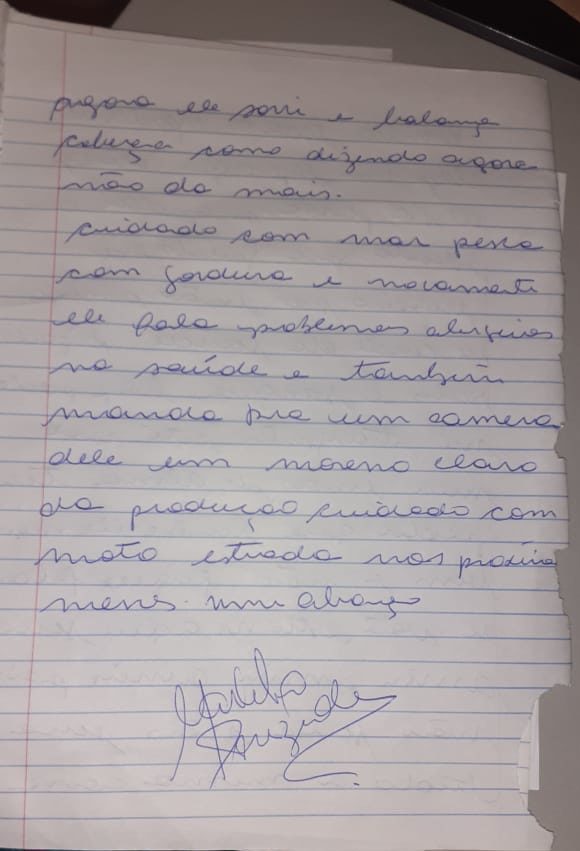 agora ele sorri e balança
cabeça como dizendo agora
não da mais.
cuidado com mar pesca
com gordura e novamente
ele fala problemas
na saúde e também
manda pra um camera
dele um moreno claro
da produção cuidado com
moto estrada nos próximo
meses. um abraço